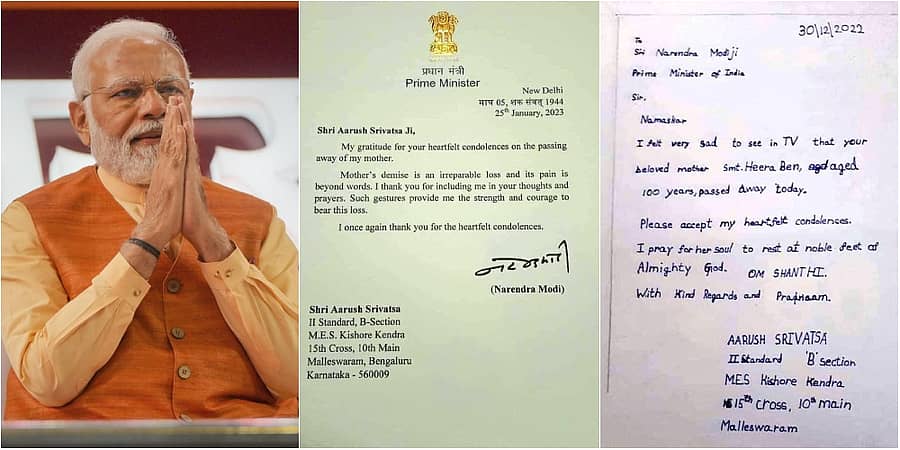 प्रधान मंत्री
Prime Minister
New Delhi
माघ 05, शक संवत् 1944
25th January, 2023
Shri Aarush Srivatsa Ji,
My gratitude for your heartfelt condolences on the passing
away of my mother.
Mother's demise is an irreparable loss and its pain is
beyond words. I thank you for including me in your thoughts and
prayers. Such gestures provide me the strength and courage to
bear this loss.
I once again thank you for the heartfelt condolences.
(Narendra Modi)
Shri Aarush Srivatsa
II Standard, B-Section
M.E.S. Kishore Kendra
15th Cross, 10th Main
Malleswaram, Bengaluru
Karnataka - 560009
30/12/2022
To
Sri Narendra Modiji
Prime Minister of India
Sir,
Namaskar
I felt very sad to see in TV that your
beloved mother Smt. Heera Ben, aged
100 years, passed away today.
Please accept my heartfelt condolences.
I pray for her soul to rest at noble feet of
Almighty God. OM SHANTHI.
With Kind Regards and Pranaam.
AARUSH SRIVATSA
II Standard 'B' section
MES Kishore Kendra
15th Cross, 10th main
Malleswaram